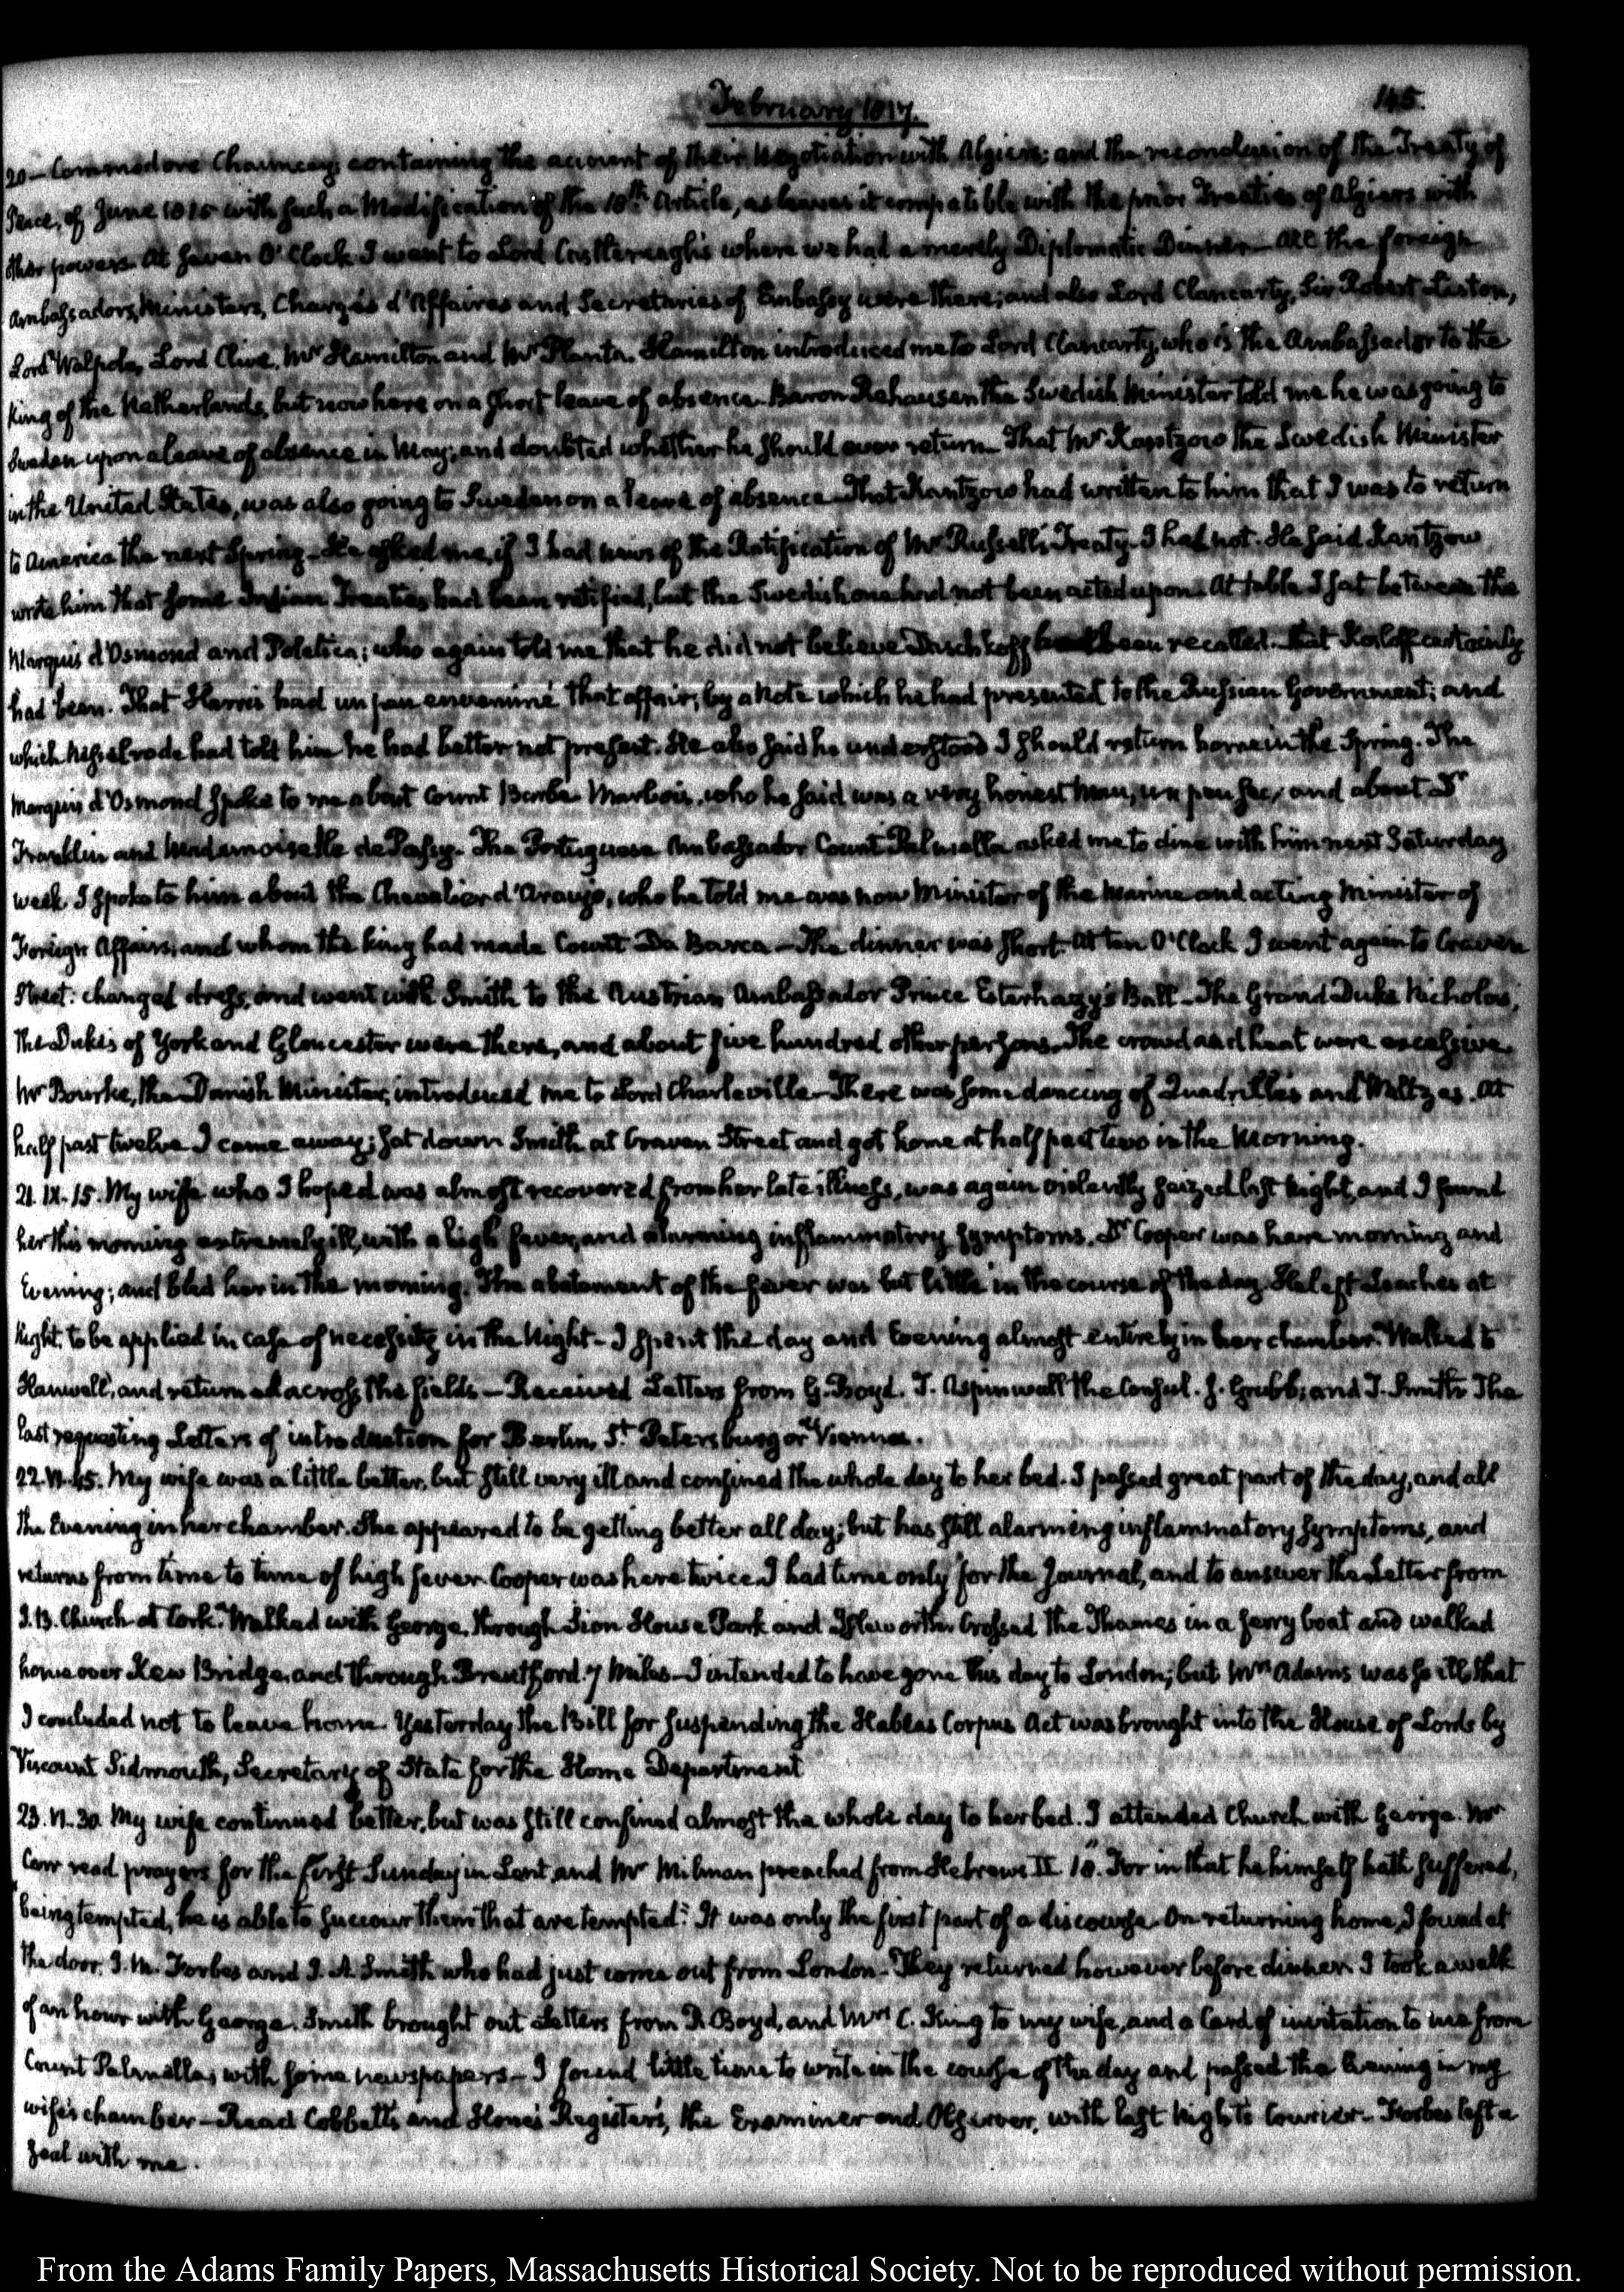 February 1817.
145.
20 — Commodore Chauncey; containing the account of their Negotiation with Algiers; and the reconclusion of the Treaty of
Peace, of June 1815 with such a Modification of the 18th. Article, as leaves it compatible with the prior Treaties of Algiers with
other powers. At seven O'Clock I went to Lord Castlereagh's where we had a merely Diplomatic Dinner — All the foreign
Ambassadors, Ministers, Chargés d'Affaires and Secretaries of Embassy were there; and also Lord Clancarty, Sir Robert Liston,
Lord Walpole, Lord Clive, Mr Hamilton and Mr Planta. Hamilton introduced me to Lord Clancarty, who is the Ambassador to the
King of the Netherlands, but now here on a short leave of absence. Baron Rehausen the Swedish Minister told me he was going to
Sweden upon a leave of absence in May; and doubted whether he should ever return — That Mr Kantzow the Swedish Minister
in the United States, was also going to Sweden on a leave of absence — That Kantzow had written to him that I was to return
to America the next Spring — He asked me, if I had news of the Ratification of Mr Russell's Treaty — I had not. He said Kantzow
wrote him that some Indian Treaties had been ratified, but the Swedish one had not been acted upon. At table I sat between the
Marquis d'Osmond and Poletica; who again told me that he did not believe Daschkoff had been recalled. That Kosloff certainly
had been. That Harris had un peu envenimé that affair, by a Note which he had presented to the Russian Government; and
which Nesselrode had told him he had better not present. He also said he understood I should return home in the Spring. The
Marquis d'Osmond spoke to me about Count Barbé Marbois, who he said was a very honest Man, un peu sec, and about Dr
Franklin and Mademoiselle de Passy. The Portuguese Ambassador Count Palmella asked me to dine with him next Saturday
week. I spoke to him about the Chevalier d'Araujo, who he told me was now Minister of the Marine and acting Minister of
Foreign Affairs; and whom the king had made Count Da Barca — The dinner was short. At ten O'Clock I went again to Craven
Street: changed dress, and went with Smith to the Austrian Ambassador Prince Esterhazy's Ball — The Grand Duke Nicholas,
the Dukes of York and Gloucester were there, and about five hundred other persons. The crowd and heat were excessive.
Mr Bourke, the Danish Minister, introduced me to Lord Charleville — There was some dancing of Quadrilles and Waltzes. At
half past twelve I came away; sat down Smith at Craven Street and got home at half past two in the Morning.
21. IX. 15. My wife who I hoped was almost recovered from her late illness, was again violently seized last Night, and I found
her this morning extremely ill, with a high fever, and alarming inflammatory symptoms. Dr Cooper was here morning and
Evening; and bled her in the morning. The abatement of the fever was but little in the course of the day. He left Leaches at
Night, to be applied in case of necessity in the Night — I spent the day and Evening almost entirely in her chamber. Walked to
Hanwell, and returned across the fields — Received Letters from G. Boyd. T. Aspinwall the Consul. J. Grubb; and J. Smith The
last requesting Letters of introduction for Berlin, St. Petersburg or Vienna.
22. VI. 45. My wife was a little better, but still very ill and confined the whole day to her bed. I passed great part of the day, and all
the Evening in her chamber. She appeared to be getting better all day; but has still alarming inflammatory symptoms, and
returns from time to time of high fever. Cooper was here twice. I had time only for the Journal, and to answer the Letter from
J. B. Church at Cork. Walked with George, through Sion House Park and Isleworth. Crossed the Thames in a ferry boat and walked
home over Kew Bridge, and through Brentford. 7 Miles — I intended to have gone this day to London; but Mrs Adams was so ill that
I concluded not to leave home. Yesterday the Bill for suspending the Habeas Corpus Act was brought into the House of Lords by
Viscount Sidmouth, Secretary of State for the Home Department
23. VI. 30. My wife continued better, but was still confined almost the whole day to her bed. I attended Church with George. Mr
Carr read prayers for the first Sunday in Lent, and Mr Milman preached from Hebrews II. 18. "For in that he himself hath suffered,
being tempted, he is able to succour them that are tempted." It was only the first part of a discourse. On returning home, I found at
the door. J. M. Forbes and J. A. Smith who had just come out from London — They returned however before dinner. I took a walk
of an hour with George. Smith brought out Letters from R. Boyd, and Mrs C. King to my wife, and a Card of invitation to me from
Count Palmella, with some newspapers — I found little time to write in the course of the day and passed the Evening in my
wife's chamber — Read Cobbett's and Hone's Registers, the Examiner and Observer, with last Night's Courier — Forbes left a
seal with me.
From the Adams Family Papers, Massachusetts Historical Society. Not to be reproduced without permission.